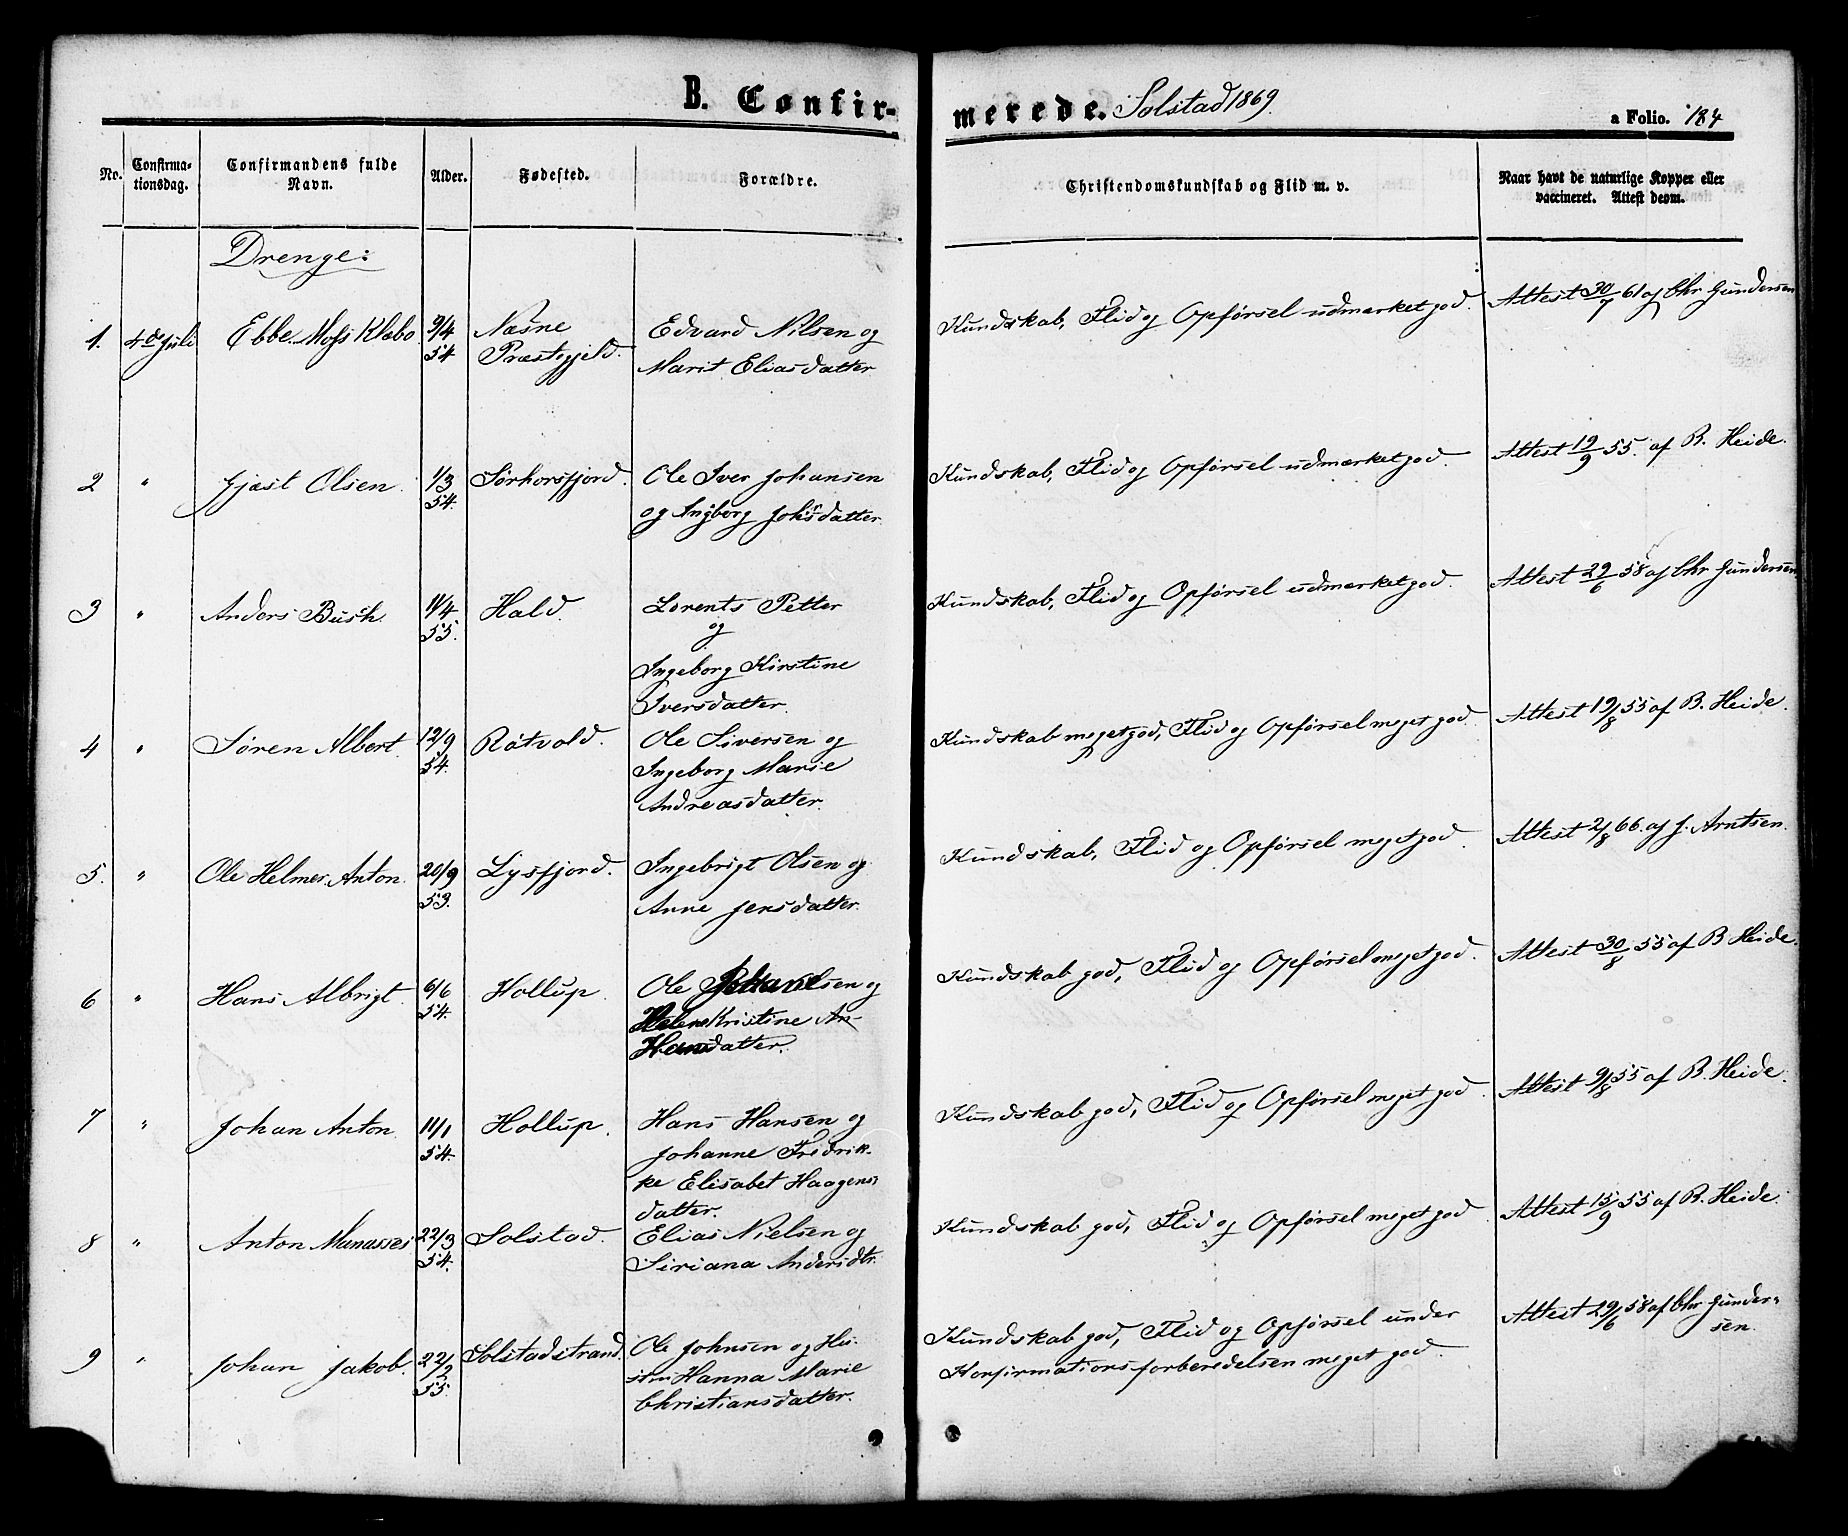 B. Confirmerede. Solstad 1869. a Folio. 184
No. Confirmationsdag. Confirmandens fulde Navn. Alder. Fødested. Forældre. Christendomskundskab og Flid m. v. Naar havt de naturlige Kopper eller vaccineret. Attest derom.
Drenge:
1. 4de Juli Ebbe Moss Klæbo 9/4 54 Næsne Præstegjeld. Edvard Nilsen og
Marit Eliasdatter
Kundskab, Flid og Opførsel udmærket god. Attest 30/7 61 af Chr Gundersen
2 " Gjæst Olsen. 1/3 54. Sørhorsfjord. Ole Iver Johansen
og Ingborg Johsdatter.
Kundskab, Flid og Opførsel udmærket god. Attest 19/9 55. af B. Heide.
3 " Anders Busch 11/4 55. Hald. Lorents Petter
og
Ingeborg Kirstine
Iversdatter.
Kundskab, Flid og Opførsel udmærket god. Attest 29/6 58 af Chr Gundersen
4 " Søren Albert. 12/9 54. Råtvold. Ole Siversen og
Ingeborg Marie
Andreasdatter.
Kundskab meget god, Flid og Opførsel meget god. Attest 19/8 55 af B. Heide.
5. " Ole Helmer Anton. 20/9 53. Lysfjord. Ingebrigt Olsen og
Anne Jensdatter.
Kundskab, Flid og Opførsel meget god. Attest 2/8 66. af J. Arntsen.
6 " Hans Albrigt. 6/6 54. Hollup. Ole Olsen og
Kristine An-
Hansdatter.
Kundskab god, Flid og Opførsel meget god. Attest 30/8 55 af B Heide.
7 " Johan Anton. 11/1 54. Hollup. Hans Hansen og
Johanne Fredrik-
ke Elisabet Haagens-
datter.
Kundskab god, Flid og Opførsel meget god. Attest 9/8 55 af B. Heide.
8 " Anton Manasses 22/3 54. Solstad. Elias Nielsen og
Siriana Andersdtr.
Kundskab god, Flid og Opførsel meget god. Attest 15/9 55 af B. Heide.
9 " Johan Jakob. 22/2 55. Solstadstrand. Ole Johnsen og Hu-
stru Hanna Marie
Christiansdatter.
Kundskab god, Flid og Opførsel under
Konfirmationsforberedelsen meget god. Attest 29/6 58 af Chr Gunder-
sen.